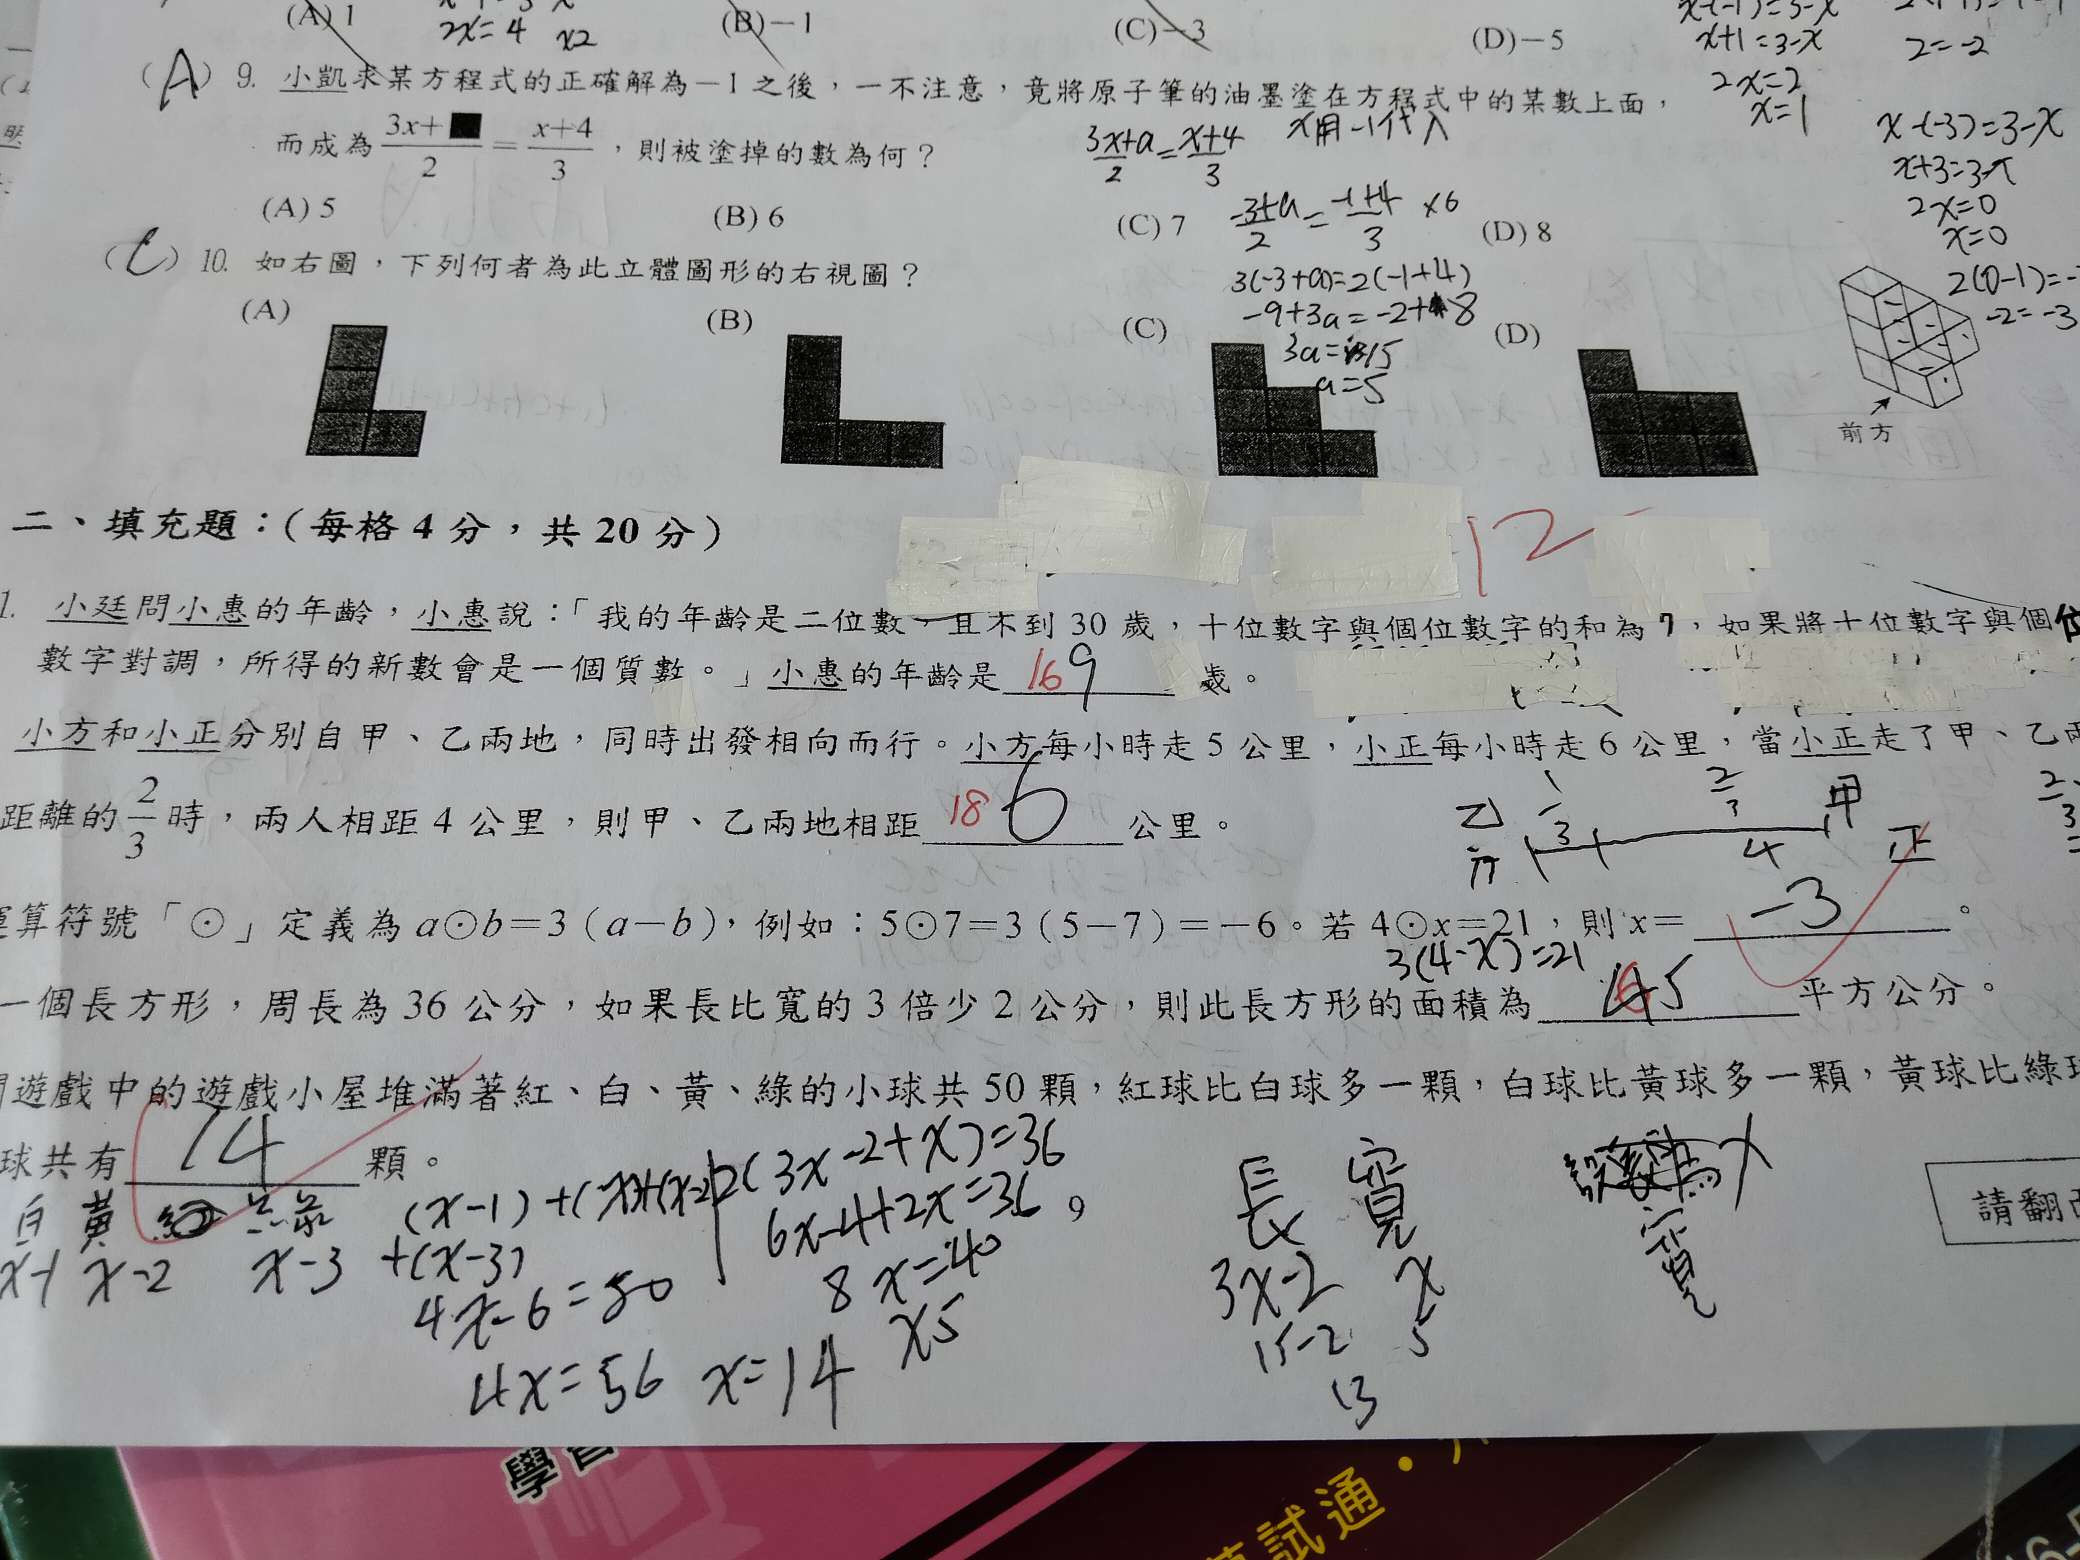 (A) 1
2x=4 x2
(B)-1
(C)-3
(D)-5
x-(-1)=3-x
x+1=3-x
2x=2
x=1
2=-2
(A) 9. 小凱求某方程式的正確解為-1之後，一不注意，竟將原子筆的油墨塗在方程式中的某數上面，
而成為 (3x+■)/2 = (x+4)/3 ，則被塗掉的數為何？
(3x+a)/2 = (x+4)/3 x用-1代入
x-(-3)=3-x
x+3=3-x
2x=0
x=0
2(0-1)=
-2=-3
(A) 5
(B) 6
(C) 7
(D) 8
(-3+a)/2 = (-1+4)/3 ×6
3(-3+a)=2(-1+4)
-9+3a=-2+8
3a=15
a=5
(C) 10. 如右圖，下列何者為此立體圖形的右視圖？
(A)
(B)
(C)
(D)
前方
二、填充題：(每格 4 分，共 20 分)
12
1. 小廷問小惠的年齡，小惠說：「我的年齡是二位數，且不到 30 歲，十位數字與個位數字的和為 7，如果將十位數字與個位
數字對調，所得的新數會是一個質數。」小惠的年齡是 16 9 歲。
小方和小正分別自甲、乙兩地，同時出發相向而行。小方每小時走 5 公里，小正每小時走 6 公里，當小正走了甲、乙兩
距離的 2/3 時，兩人相距 4 公里，則甲、乙兩地相距 18 6 公里。
乙 1/3 2/3 甲
方 4 正
運算符號「⊙」定義為 a⊙b=3（a-b），例如：5⊙7=3（5-7）=-6。若 4⊙x=21，則 x= -3 。
3(4-x)=21
一個長方形，周長為 36 公分，如果長比寬的 3 倍少 2 公分，則此長方形的面積為 65 平方公分。
遊戲中的遊戲小屋堆滿著紅、白、黃、綠的小球共 50 顆，紅球比白球多一顆，白球比黃球多一顆，黃球比綠球
球共有 14 顆。
白 黃 綠
x-1 x-2 x-3
+(x-3)
4x-6=50
4x=56 x=14
2(3x-2+x)=36
6x-4+2x=36
8x=40
x5
長 寬
3x-2 x
15-2 5
13
寬
請翻
試通